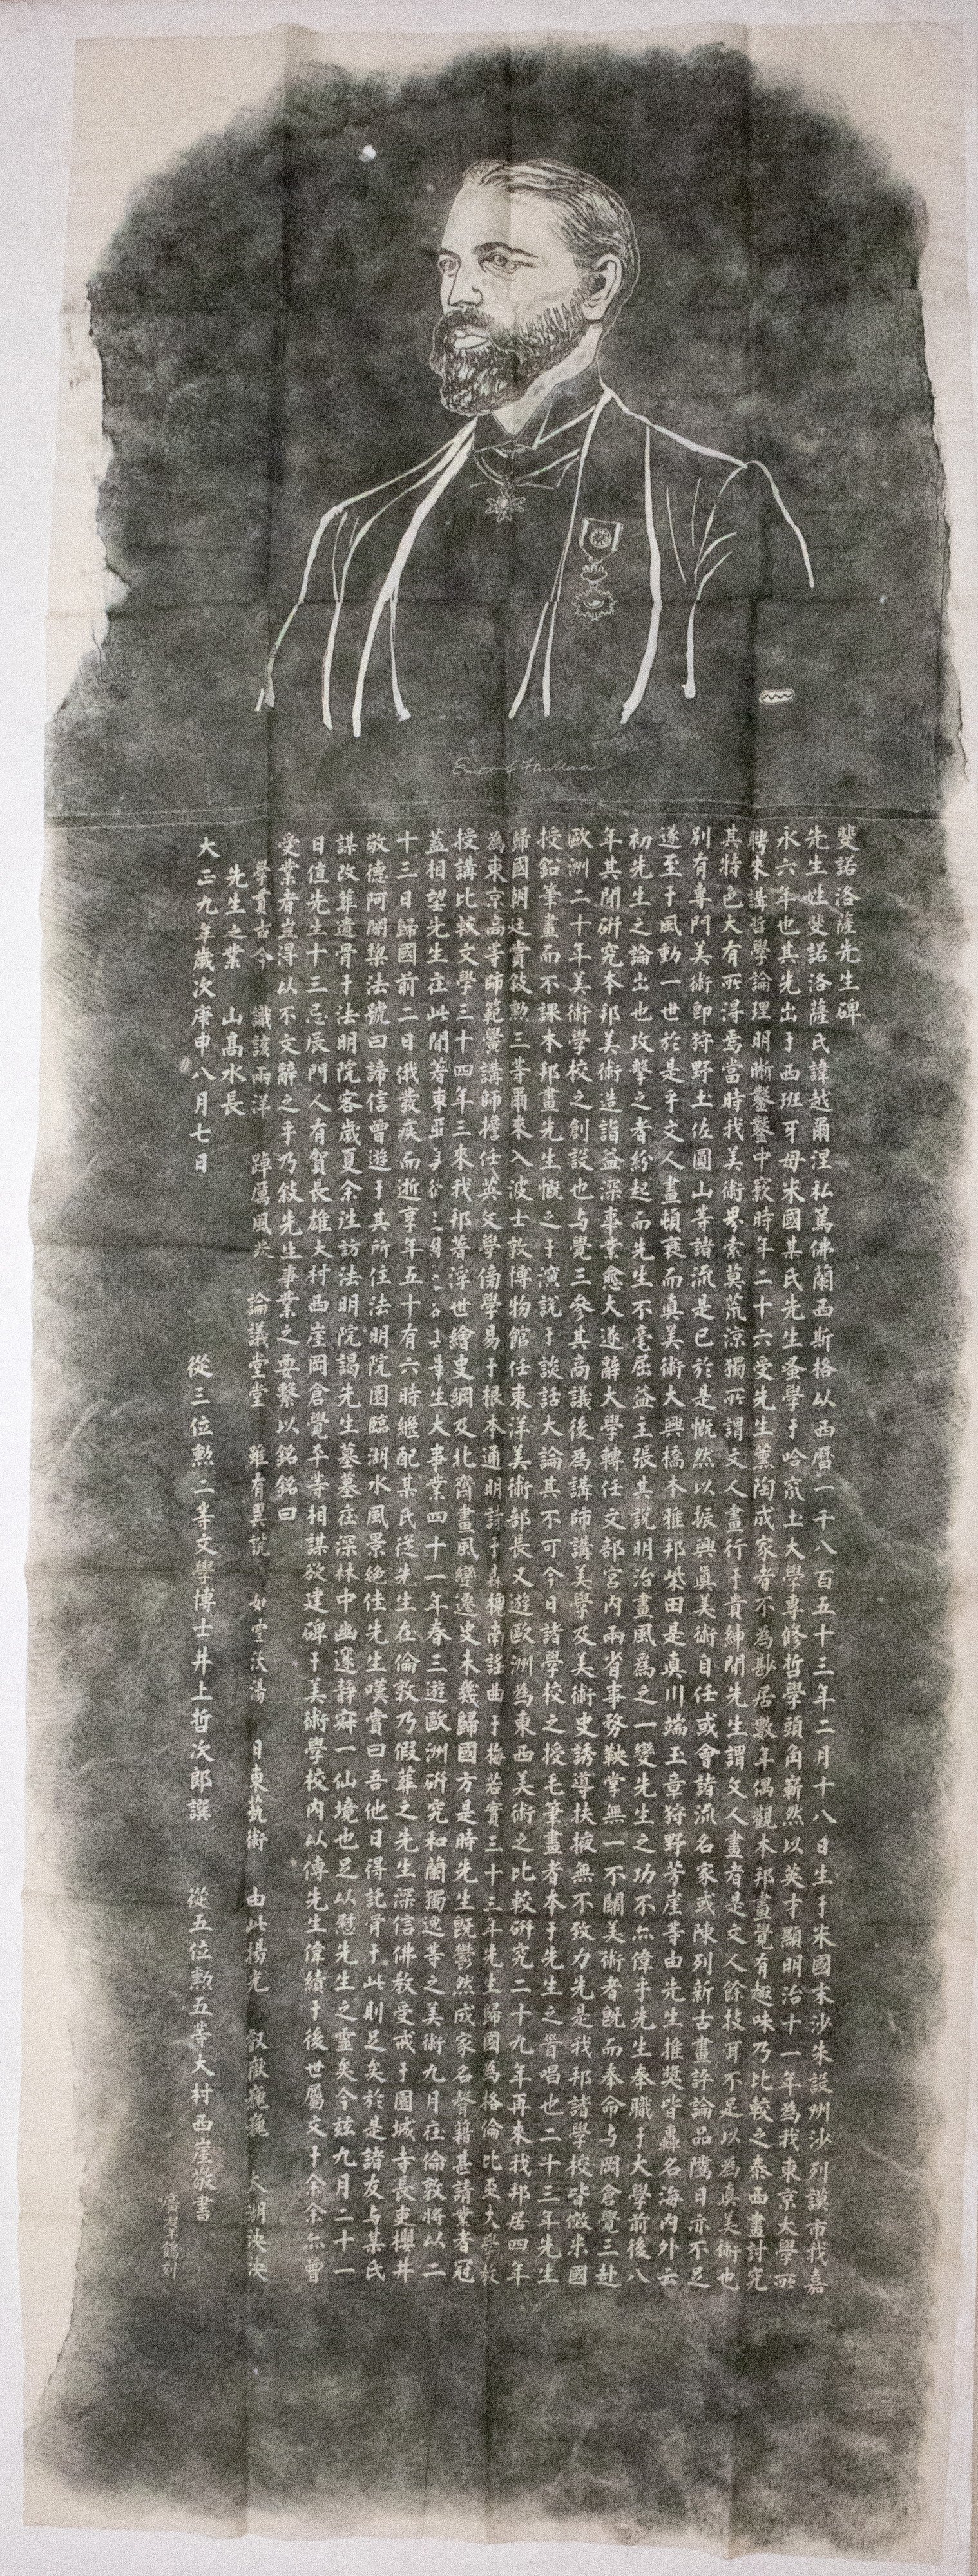 斐諾洛薩先生碑
先生姓斐諾洛薩氏諱越爾涅私篤佛蘭西斯格以西曆一千八百五十三年二月十八日生于米國末沙朱設州沙列謨市我嘉
永六年也其先出于西班牙母米國某氏先生蚤學于哈宬土大學專修哲學頭角嶄然以英才顯明治十一年為我東京大學所
聘來講哲學論理明晰鑿鑿中窾時年二十六受先生薰陶成家者不為尠居數年偶觀本邦畫覺有趣味乃比較之泰西畫討究
其特色大有所得焉當時我美術界索莫荒涼獨所謂文人畫行于貴紳間先生謂文人畫者是文人餘技耳不足以為真美術也
別有專門美術即狩野土佐圓山等諸流是已於是慨然以振興真美術自任或會諸流名家或陳列新古畫評論品隲日亦不足
遂至于風動一世於是乎文人畫頓衰而真美術大興橋本雅邦柴田是真川端玉章狩野芳崖等由先生推獎皆轟名海內外云
初先生之論出也攻擊之者紛起而先生不毫屈益主張其說明治畫風為之一變先生之功不亦偉乎先生奉職于大學前後八
年其間研究本邦美術造詣益深事業愈大遂辭大學轉任文部宮內兩省事務鞅掌無一不關美術者既而奉命与岡倉覺三赴
歐洲二十年美術學校之創設也与覺三參其高議後為講師講美學及美術史誘導扶掖無不致力先是我邦諸學校皆倣米國
授鉛筆畫而不課本邦畫先生慨之于演說于談話大論其不可今日諸學校之授毛筆畫者本于先生之唱也二十三年先生
歸國朝廷賞敘勲三等爾來入波士敦博物館任東洋美術部長又遊歐洲為東西美術之比較研究二十九年再來我邦居四年
為東京高等師範學講師擔任英文學傍學易于根本通明謡曲于梅若實三十三年先生歸國為格倫比亞大學教
授講比較文學三十四年三來我邦著浮世繪史綱及北齋畫風變遷史未幾歸國方是時先生既鬱然成家名聲藉甚請業者冠
蓋相望先生在此間著東亞美術畢生大事業四十一年春三遊歐洲研究和蘭獨逸等之美術九月在倫敦將以二
十三日歸國前二日俄發疾而逝享年五十有六時繼配某氏從先生在倫敦乃假葬之先生深信佛教受戒于園城寺長吏櫻井
敬德阿闍梨法號曰諦信曾遊于其所住法明院園臨湖水風景絕佳先生嘆賞曰吾他日得託骨于此則足矣於是諸友与某氏
謀改葬遺骨于法明院客歲夏余往訪法明院謁先生墓墓在深林中幽邃靜寂一仙境也足以慰先生之靈矣今茲九月二十一
日值先生十三忌辰門人有賀長雄大村西崖岡倉覺平等相謀欲建碑于美術學校內以傳先生偉績于後世屬文于余余亦曾
受業者豈得以不文辭之乎乃敘先生事業之要繫以銘銘曰
學貫古今 識該兩洋 踔厲風發 論議堂堂 雖有異說 如雪沃湯 日東藝術 由此揚光 叡嶽巍巍 大湖泱泱
先生之業 山高水長
大正九年歲次庚申八月七日 從三位勲二等文學博士井上哲次郎撰 從五位勲五等大村西崖敬書
鶴刻